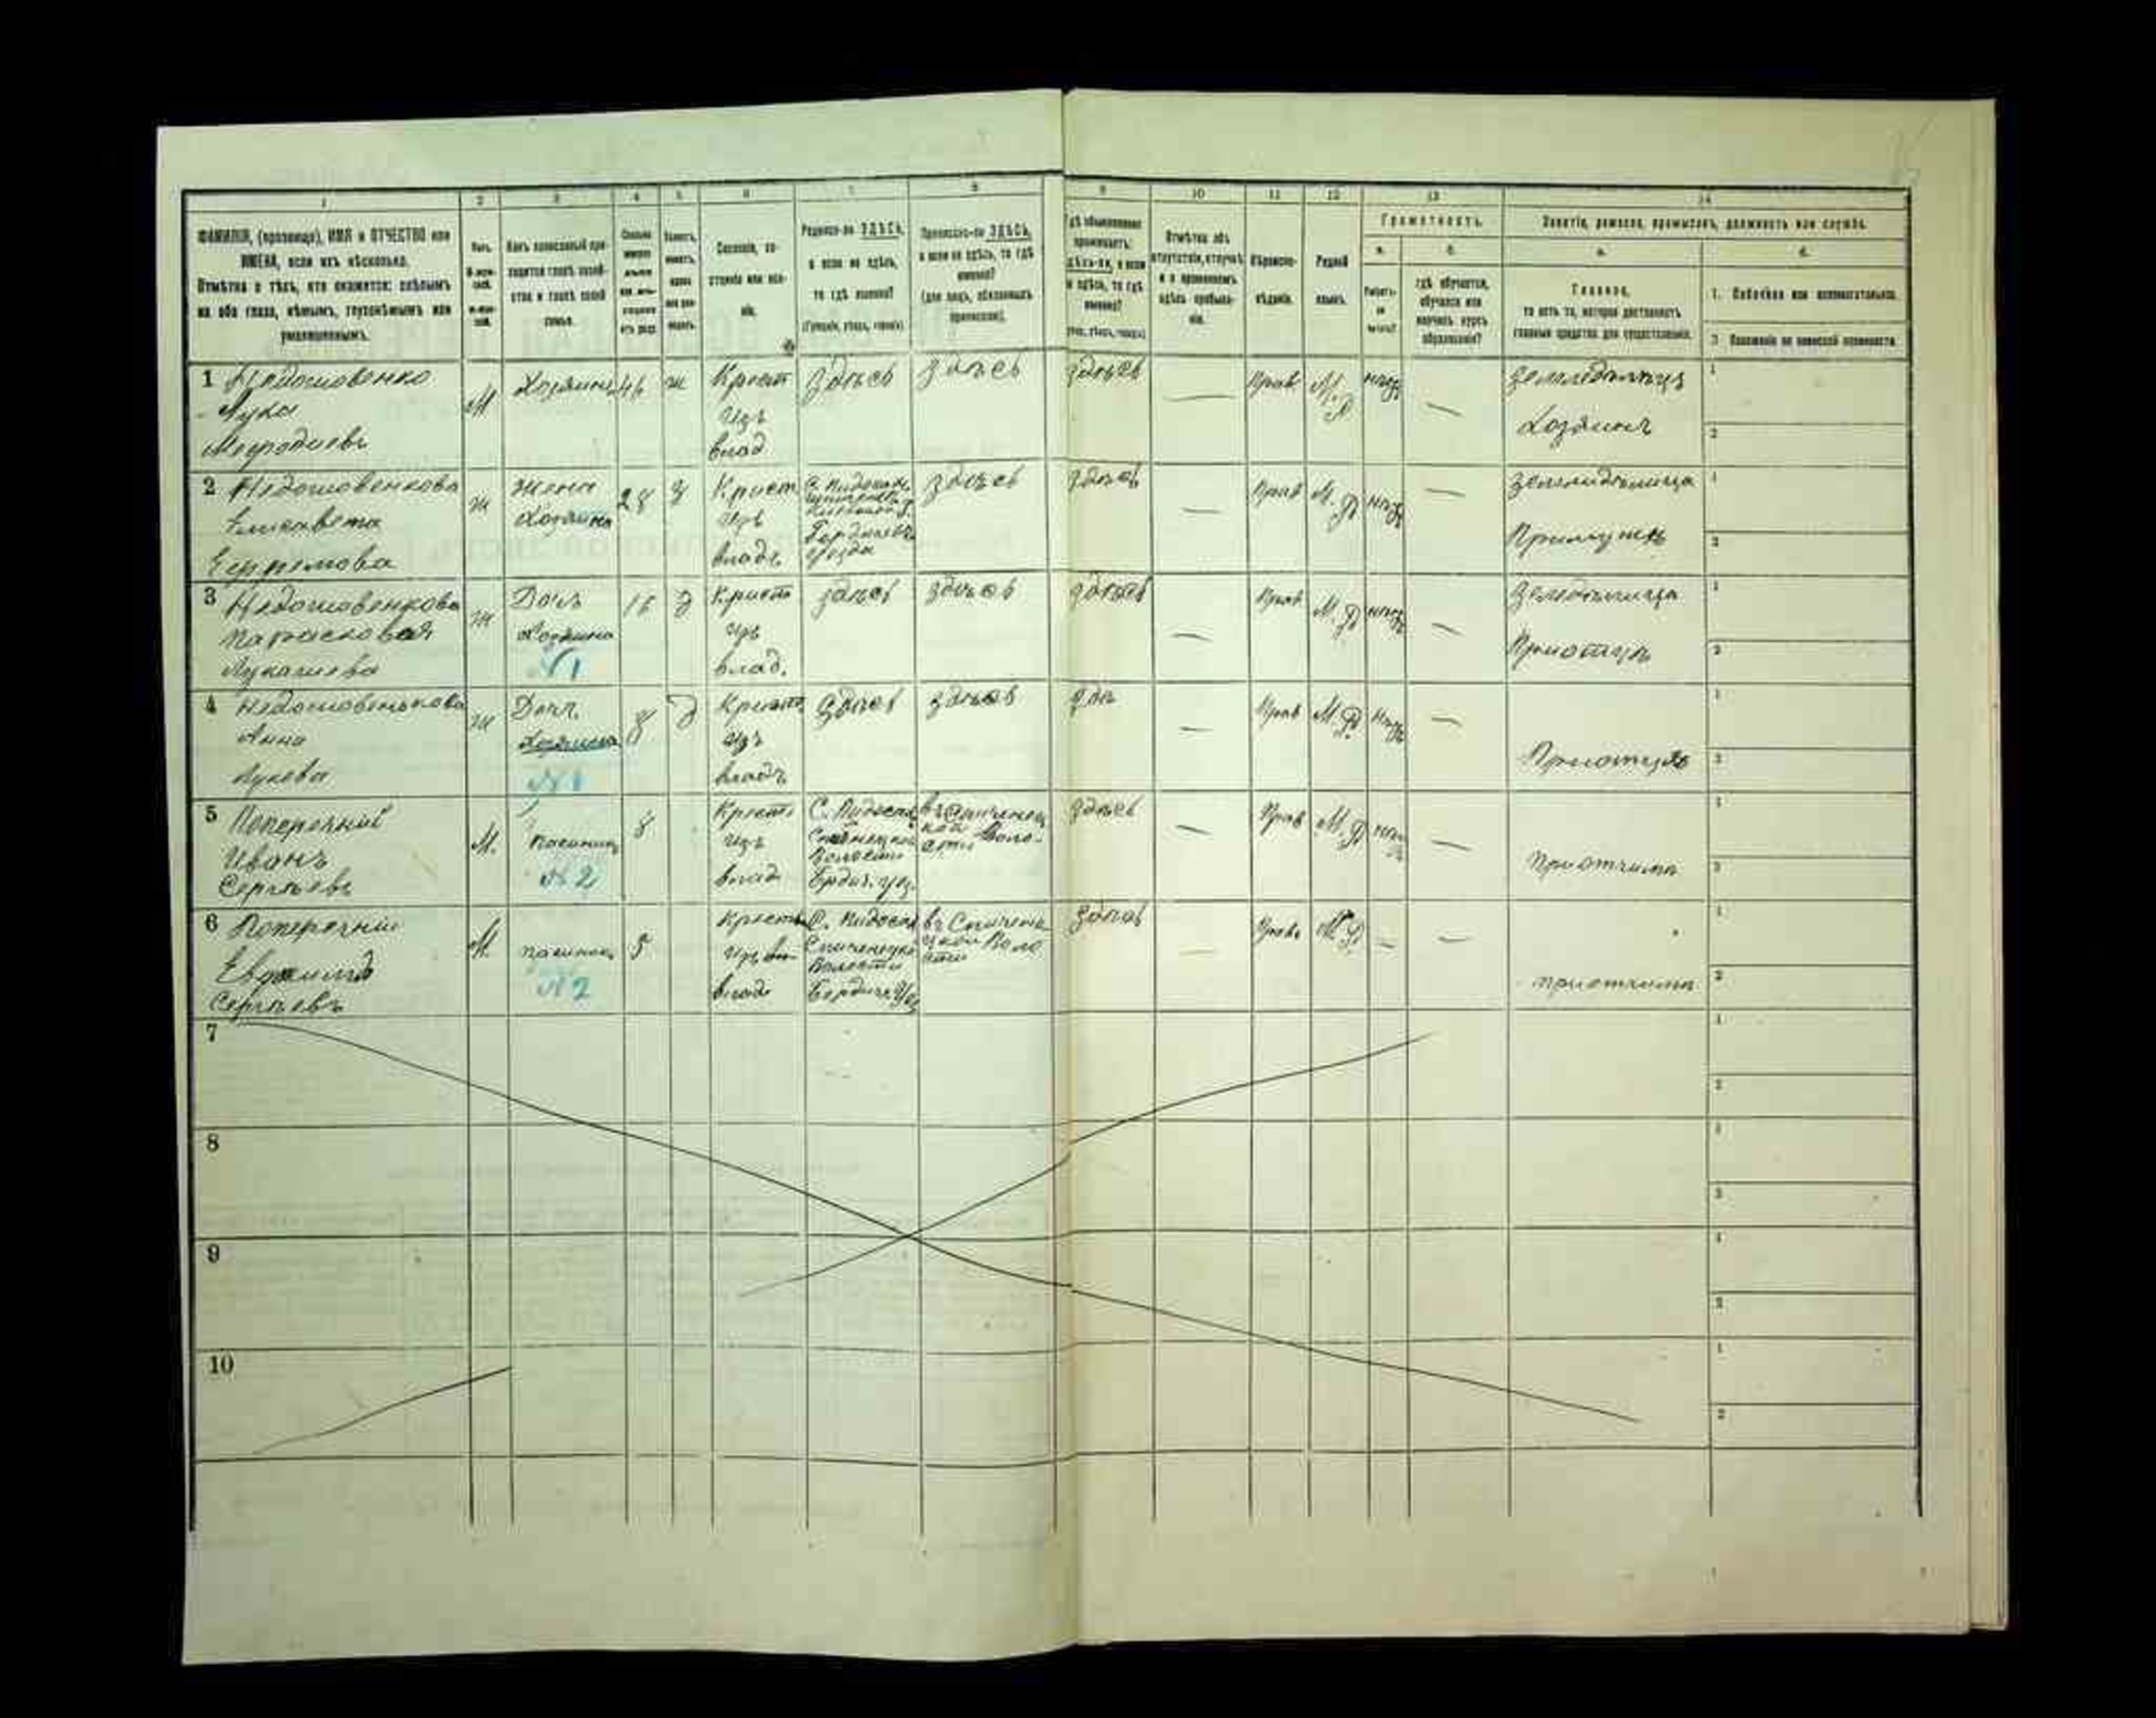 1 2 3 4 5 6 7 8 9 10 11 12 13 14
ФАМИЛІЯ, (прозвище), ИМЯ и ОТЧЕСТВО или
ИМЕНА, если ихъ нѣсколько.
Отмѣтка о тѣхъ, кто окажется: слѣпымъ
на оба глаза, нѣмымъ, глухонѣмымъ или
умалишеннымъ.
Полъ.
Какъ записанный при-
ходится главѣ хозяй-
ства и главѣ своей
семьи.
Сословіе, со-
стояніе или зва-
ніе.
Родился-ли ЗДѢСЬ,
а если не здѣсь,
то гдѣ именно?
(Губернія, уѣздъ, городъ)
Приписанъ-ли ЗДѢСЬ,
а если не здѣсь, то гдѣ
именно?
(для лицъ, обязанныхъ
припиской).
Гдѣ обыкновенно
проживаетъ:
здѣсь-ли, а если
не здѣсь, то гдѣ
именно?
Отмѣтка объ
отсутствіи, отлучкѣ
и о временномъ
здѣсь пребыва-
ніи.
Вѣроиспо-
вѣданіе.
Родной
языкъ.
Грамотность.
а. б.
Умѣетъ-
ли
читать?
гдѣ обучается,
обучался или
кончилъ курсъ
образованія?
Занятіе, ремесло, промыселъ, должность или служба.
а.
Главное,
то есть то, которое доставляетъ
главныя средства для существованія.
1. Побочное или вспомогательное.
2. Положеніе по воинской повинности.
1 Недошовенко
Лука
Мефодиевъ
М
Хозяинъ
46
ж
Крест
изъ
влад
здѣсь
здѣсь
здѣсь
—
Прав
М. Р
нѣтъ
—
Земледѣлецъ
Хозяинъ
1
2
2 Недошовенкова
Елисавета
Ефремова
ж
Жена
Хозяина
28
З
Крест
изъ
владѣ
Бердичевъ
уѣзда
здѣсь
здѣсь
—
Прав
М. Р
нѣтъ
—
Земледѣлица
Примужѣ
1
2
3 Недошовенкова
Парасковая
Лукашева
ж
Дочь
Хозяина
№1
16
Д
Крест
изъ
влад.
здѣсь
здѣсь
здѣсь
—
Прав
М. Р
нѣтъ
—
Земледѣлица
Приотцѣ
1
2
4 Недошовенькова
Анна
Лукева
ж
Дочь
Хозяина
№1
8
Д
Крест
изъ
владѣ
здѣсь
здѣсь
здѣ
—
Прав
М. Р
нѣтъ
—
Приотцѣ
1
2
5 Поперечний
Иванъ
Сергѣевъ
М.
пасинокъ
№2
8
Крест
изъ
влад
Волости
Бердич. уѣз.
въ Спиченец
кой Воло-
сти
здѣсь
—
Прав
М. Р
—
приотчимѣ
1
2
6 Поперечний
Сергѣевъ
М.
пасинокъ
№2
5
Крест
изъ
влад
Спиченецко
Волости
Бердич Уѣз
въ Спичене
цкой Воло
сти
здѣсь
—
Прав
М. Р
—
—
приотчимѣ
1
2
7
1
2
8
1
2
9
1
2
10
1
2